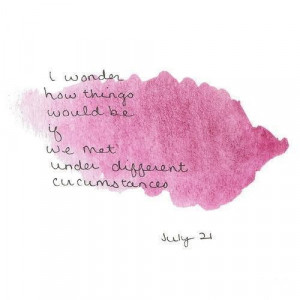 i wonder
how things
would be
if
we met
under different
cucumstances
July 21